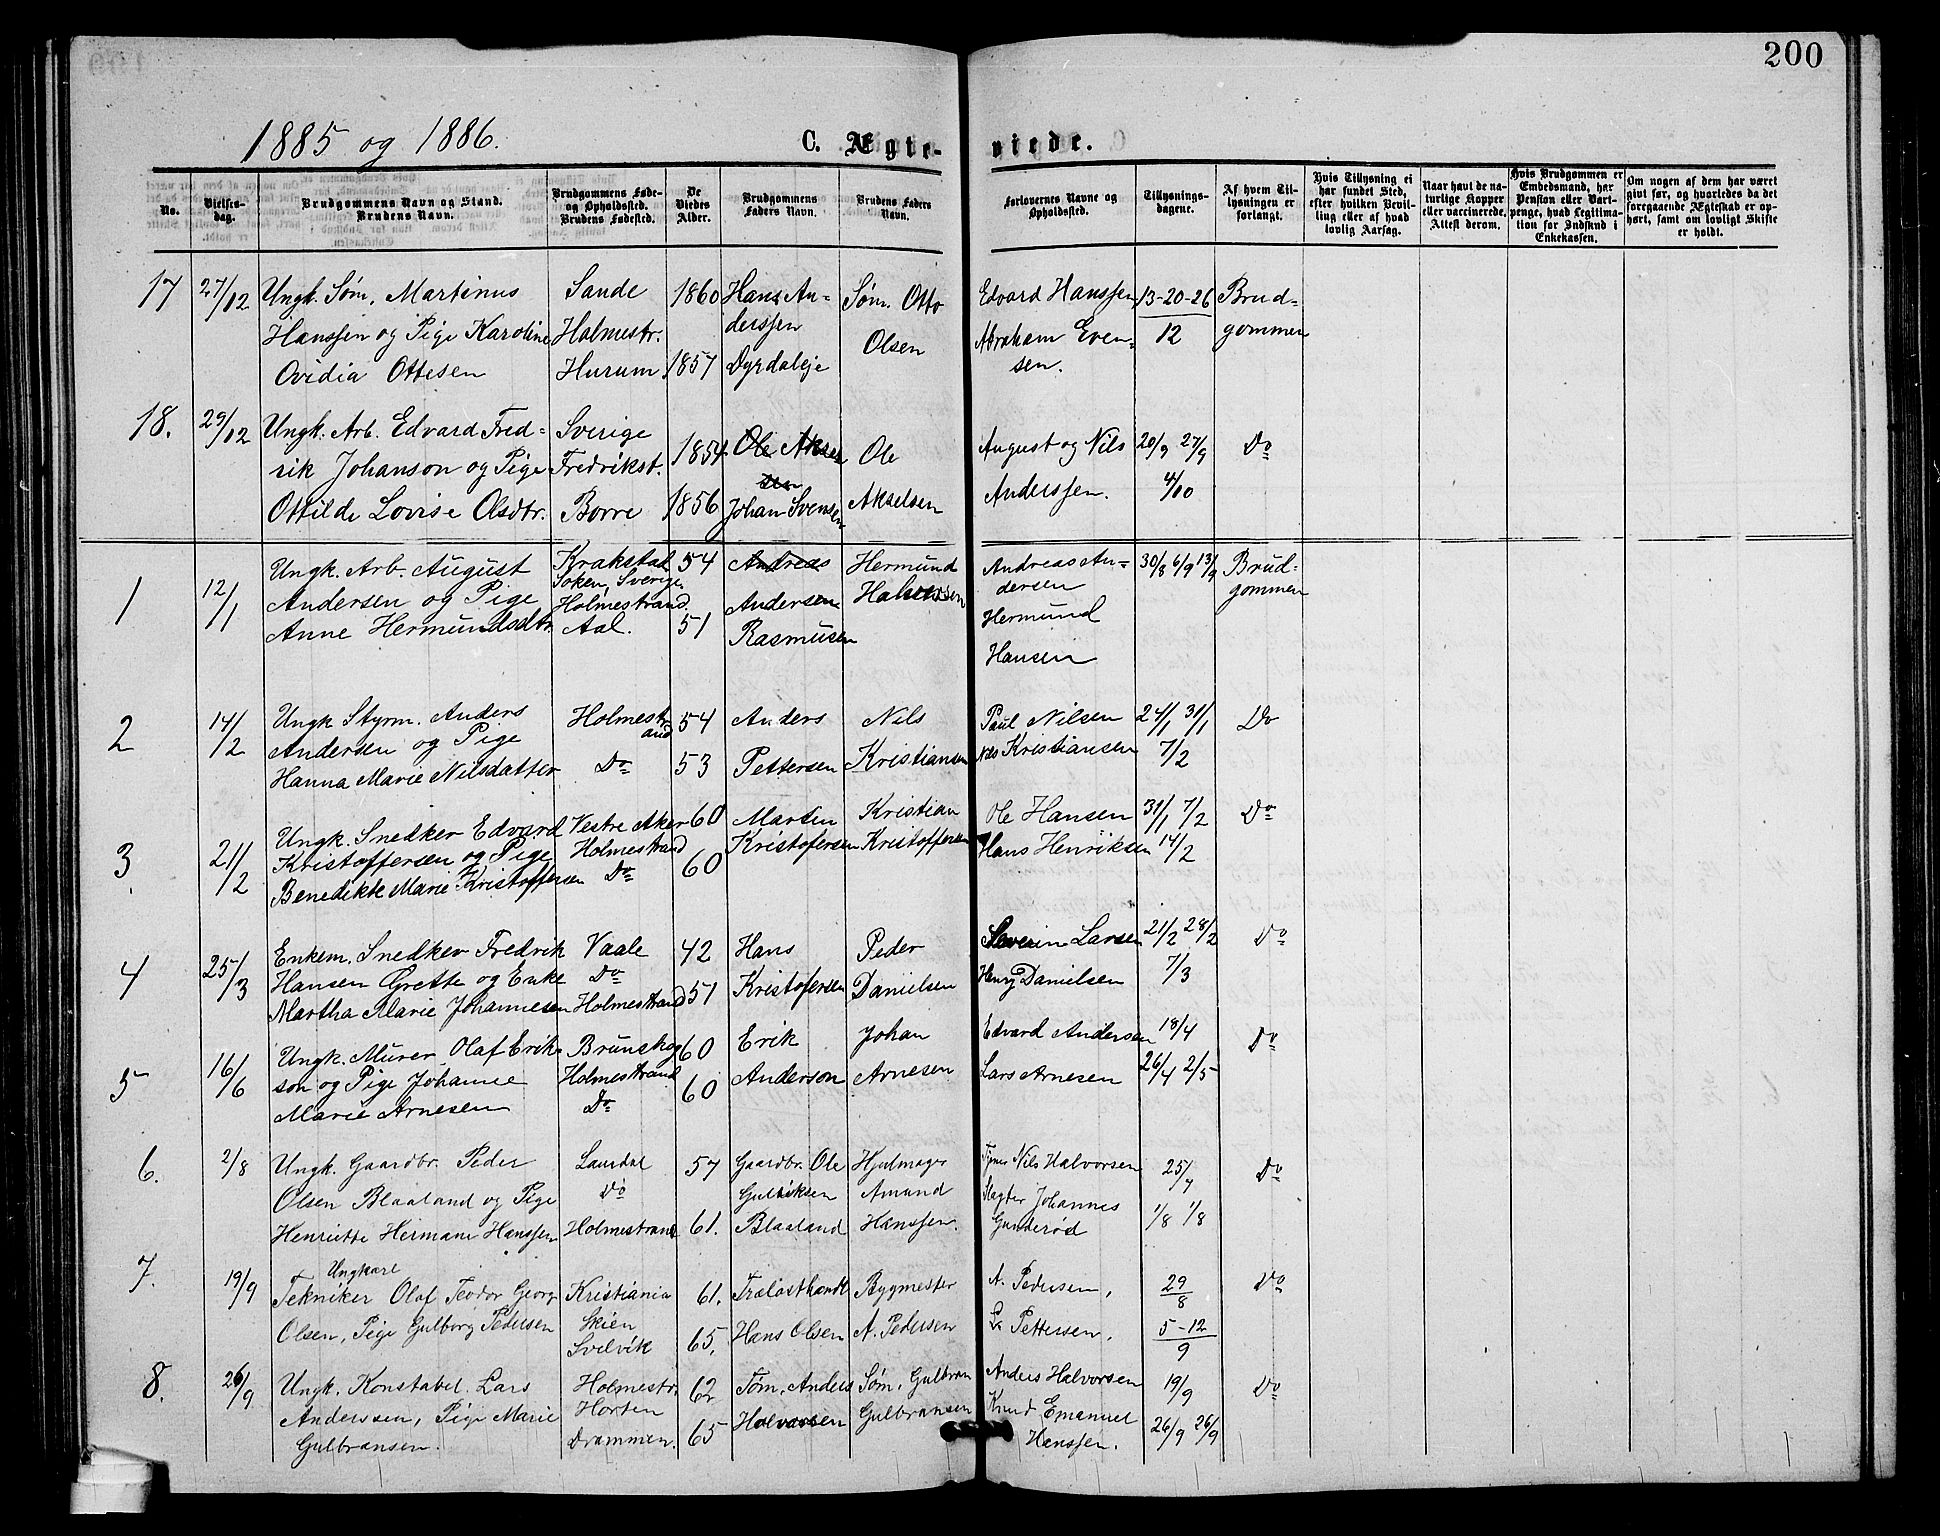 200
1885 og 1886.
C. Ægte-
viede.
No.
Vielses-
dag.
Brudgommens Navn og Stand.
Brudens Navn.
Brudgommens Føde-
og Opholdssted.
Brudens Fødested.
De
Viedes
Alder.
Brudgommens
Faders Navn.
Brudens Faders
Navn.
Forlovernes Navne og
Opholdssted.
Tillysnings-
dagene.
Af hvem Til-
lysningen er
forlangt.
Hvis Tillysning ei
har fundet Sted,
efter hvilken Bevil-
ling eller af hvad
lovlig Aarsag.
Naar havt de na-
turlige Kopper
eller vaccinerede,
Attest derom.
Hvis Brudgommen er
Embedsmand, har
Pension eller Vart-
penge, hvad Legitima-
tion for Indskud i
Enkekassen.
Om nogen af dem har været
gift før, og hvorledes da det
foregaaende Ægteskab er op-
hørt, samt om lovligt Skifte
er holdt.
17 27/12 Ungk. Søm. Martinus Sande 1860 Hans An- Søm. Otto Edvard Hanssen 13-20-26 Brud-
Hanssen og Pige Karoline Holmestr. derssen Olsen Abraham Even- 12 gommen
Ovidia Ottesen Hurum 1857 Dyrdaleje sen.
18. 29/12 Ungk. Arb. Edvard Fred- Sverige 1854. Ole Aksel Ole August og Nils 20/9 27/9 Do
rik Johanson og Pige Fredrikst. sen Anderssen. 4/10
Ottilde Lovise Olsdtr. Borre 1856 Johan Svensen Akselsen
1 12/1 Ungk. Arb. August Krakstad 54 Andreas Hermund Andreas An- 30/8 6/9 13/9 Brud-
Andersen og Pige Soken, Sverige Holmestrand Andersen Halvorsen dersen gommen
Anne Hermundsdtr. Aal. 51 Rasmusen Hermund
Hansen
2 14/2 Ungk Styrm. Anders Holmestr 54 Anders Nils Paul Nilsen 24/1 31/1 Do
Andersen og Pige and Nils Kristiansen 7/2
Hanna Marie Nilsdatter Do 53 Pettersen Kristiansen
3 21/2 Ungk. Snedker Edvard Vestre Aker 60 Marten Kristian Ole Hansen 31/1 7/2 Do
Kristoffersen og Pige Holmestrand Kristofersen Kristoffersen Hans Henriksen 14/2
Benedikte Marie Kristoffersen Do 60
4 25/3 Enkem. Snedker Fredrik Vaale 42 Hans Peder Severin Larsen 21/2 28/2 Do
Hansen Grette og Enke Do Kristofersen Danielsen Henry Danielsen 7/3
Martha Marie Johannesen Holmestrand 51
5 16/6 Ungk. Murer Olaf Erik- Brunskog 60 Erik Johan Edvard Andersen 18/4 Do
son og Pige Johanne Holmestrand Anderson Arnesen Lars Arnesen 26/4 2/5
Marie Arnesen Do 60
6. 2/8 Ungk. Gaardbr. Peder Laurdal 57 Gaardbr. Ole Hjulmager Nils Halvorsen 25/7 Do
Olsen Blaaland og Pige Do Gulliksen Amund Slagter Johannes
Henriette Hermane Hanssen Holmestrand 61. Blaaland Hanssen. Gunderød 1/8 1/8
7. 19/9 Ungkarl
Tekniker Olaf Teodor Georg Kristiania 61. Trælasthandl Bygmester A. Pedersen, 29/8 Do
Olsen, Pige Gulborg Pedersen Skien Svelvik 65. Hans Olsen A. Pedersen Pettersen. 5-12/9
8. 26/9 Ungk. Konstabel. Lars Holmestr. 62 Tøm. Anders Søm. Gulbran Anders Halvorsen 19/9 Do
Anderssen, Pige Marie Horten Halvorsen Gulbransen Knud Emanuel
Gulbransen. Drammen. 65 Hanssen. 26/9 26/9